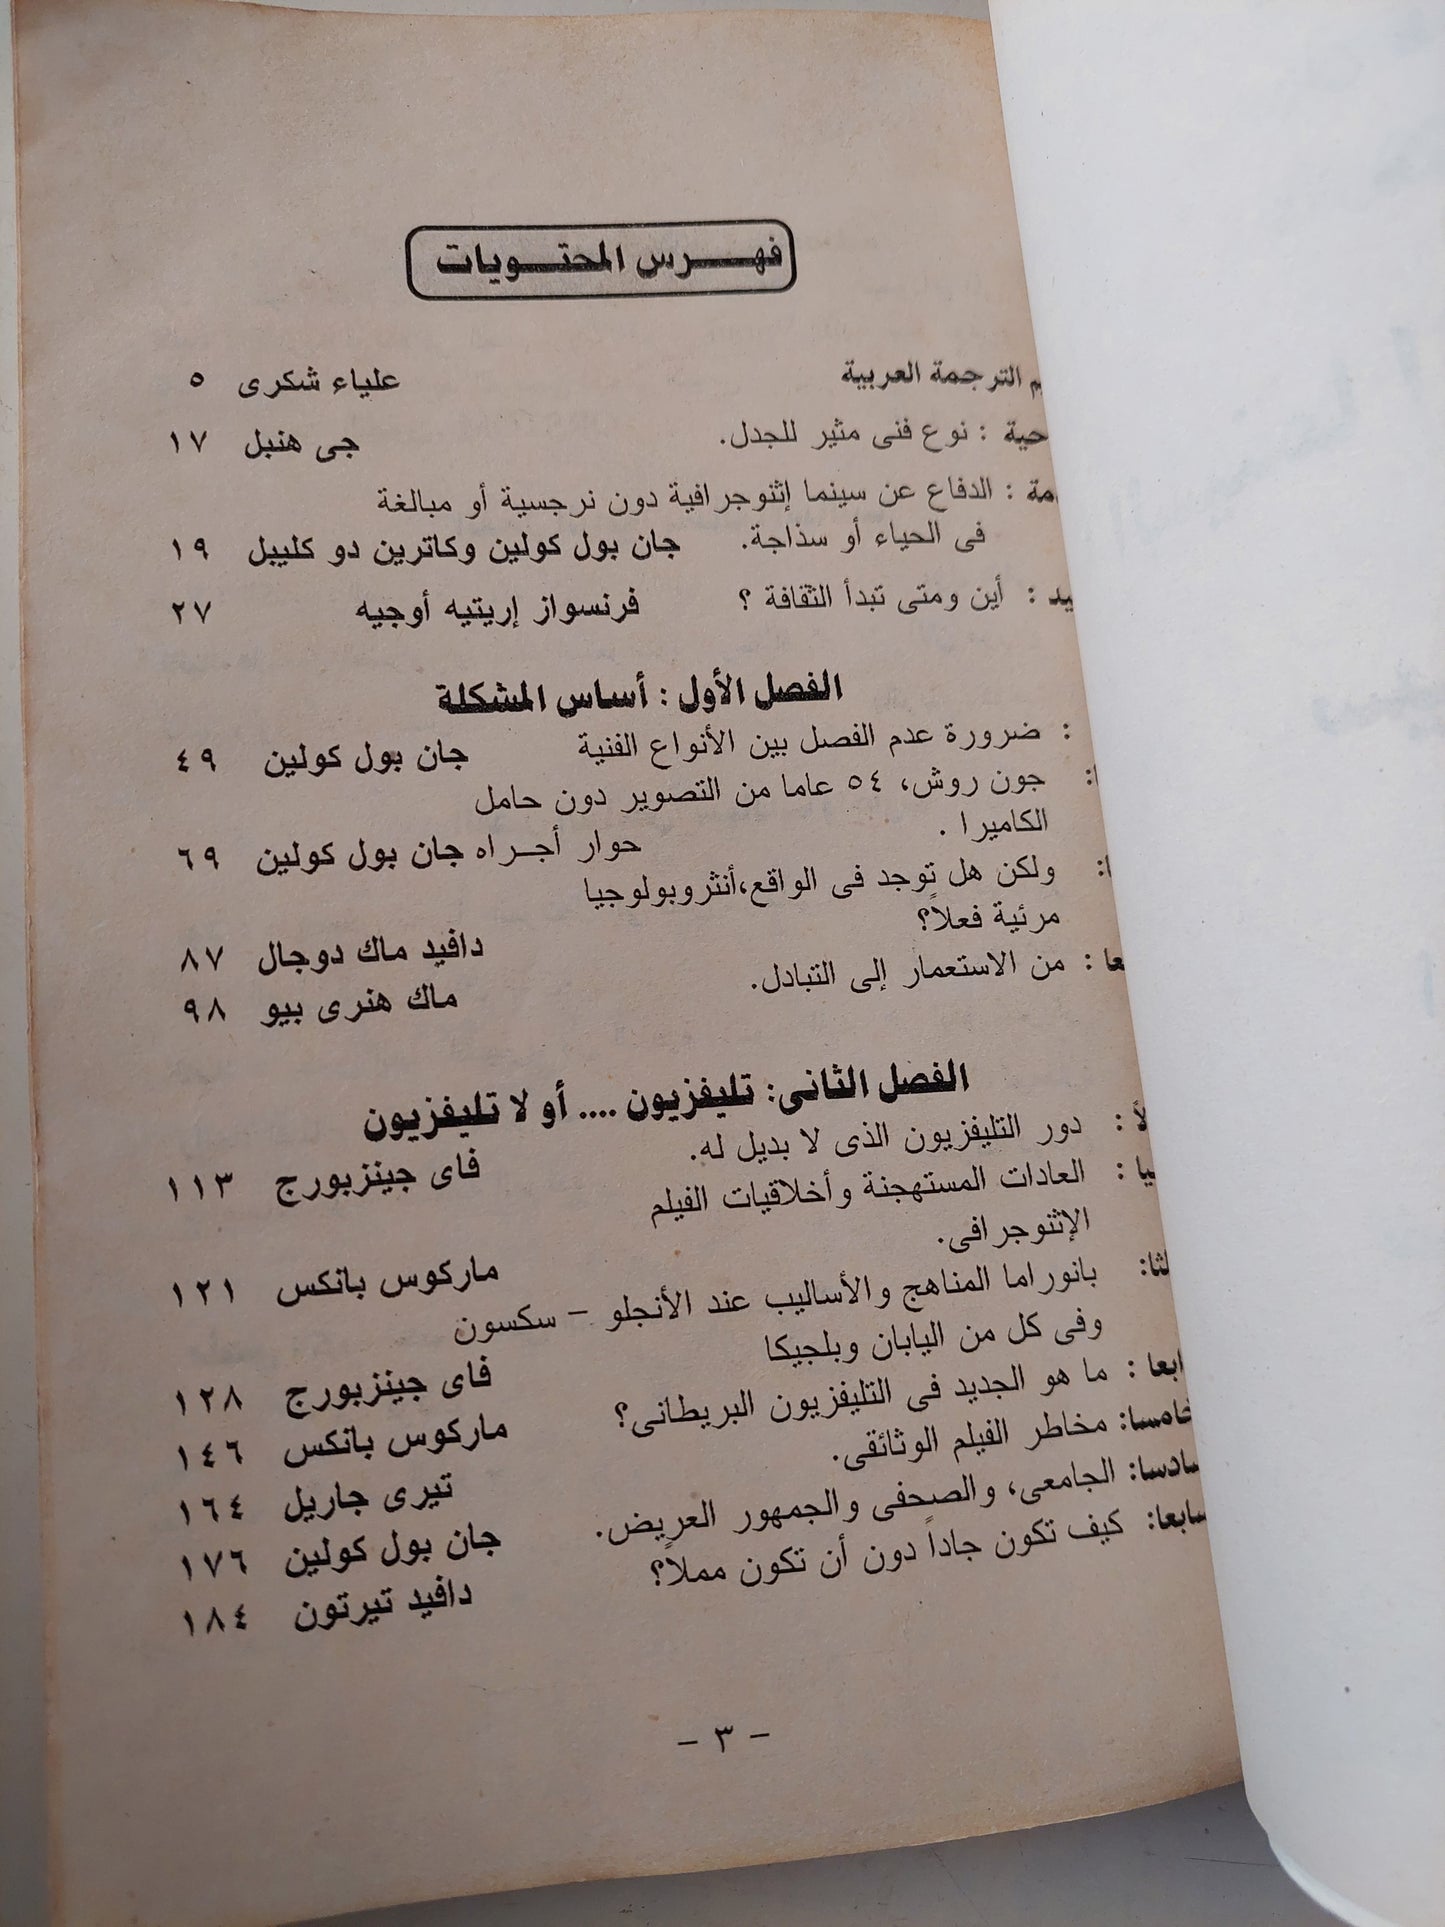 فهرس المحتويات
الترجمة العربية علياء شكرى ٥
: نوع فنى مثير للجدل. جى هنبل ١٧
: الدفاع عن سينما إثنوجرافية دون نرجسية أو مبالغة
فى الحياء أو سذاجة. جان بول كولين وكاترين دو كليبل ١٩
: أين ومتى تبدأ الثقافة ؟ فرنسواز إريتيه أوجيه ٢٧
الفصل الأول : أساس المشكلة
: ضرورة عدم الفصل بين الأنواع الفنية جان بول كولين ٤٩
: جون روش، ٥٤ عاما من التصوير دون حامل
الكاميرا . حوار أجراه جان بول كولين ٦٩
: ولكن هل توجد فى الواقع،أنثروبولوجيا
مرئية فعلاً؟ دافيد ماك دوجال ٨٧
: من الاستعمار إلى التبادل. ماك هنرى بيو ٩٨
الفصل الثانى: تليفزيون .... أو لا تليفزيون
: دور التليفزيون الذى لا بديل له. فاى جينزبورج ١١٣
: العادات المستهجنة وأخلاقيات الفيلم
الإثنوجرافى. ماركوس بانكس ١٢١
: بانوراما المناهج والأساليب عند الأنجلو - سكسون
وفى كل من اليابان وبلجيكا فاى جينزبورج ١٢٨
: ما هو الجديد فى التليفزيون البريطانى؟ ماركوس بانكس ١٤٦
خامسا: مخاطر الفيلم الوثائقى. تيرى جاريل ١٦٤
سادسا: الجامعى، والصحفى والجمهور العريض. جان بول كولين ١٧٦
سابعا: كيف تكون جاداً دون أن تكون مملاً؟ دافيد تيرتون ١٨٤
- ٣ -